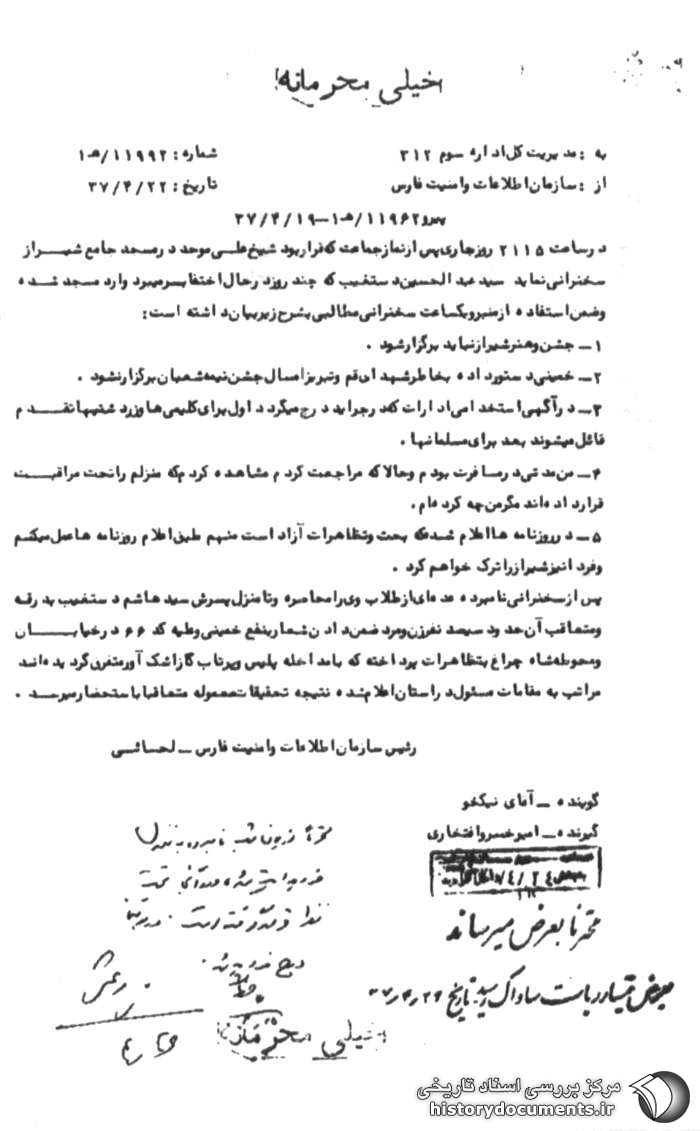 خیلی محرمانه
به : مدیریت کل اداره سوم ۳۱۲
شماره : ۱۱۹۹۲/هـ۱
از : سازمان اطلاعات و امنیت فارس
تاریخ : ۳۷/۴/۲۲
پیرو ۱۱۹۶۲/هـ۱-۳۷/۴/۱۹
در ساعت ۲۱۱۵ روز جاری پس از نماز جماعت که قرار بود شیخ علی موحد در مسجد جامع شیراز
سخنرانی نماید سید عبدالحسین دستغیب که چند روز در حال اختفا بسر میبرد وارد مسجد شده
و ضمن استفاده از منبر و یکساعت سخنرانی مطالبی بشرح زیر بیان داشته است :
۱ـ جشن و هنر شیراز نباید برگزار شود .
۲ـ خمینی دستور داده بخاطر شهدای قم و تبریز امسال جشن نیمه شعبان برگزار نشود .
۳ـ در آگهی استخدامی ادارات که در جراید درج میگردد اول برای کلیمی ها و زردشتیها تقدم
قائل میشوند بعد برای مسلمانها .
۴ـ من مدتی در مسافرت بودم و حالا که مراجعت کردم مشاهده کردم که منزلم را تحت مراقبت
قرار داده اند مگر من چه کرده ام .
۵ـ در روزنامه ها اعلام شده که بحث و تظاهرات آزاد است منهم طبق اعلام روزنامه ها عمل میکنم
و فردا نیز شیراز را ترک خواهم کرد .
پس از سخنرانی نامبرده عده ای از طلاب وی را محاصره و تا منزل پسرش سید هاشم دستغیب بدرقه
و متعاقب آن حدود سیصد نفر زن و مرد ضمن دادن شعار بنفع خمینی و علیه کد ۶۶ در خیابان
و محوطه شاه چراغ بتظاهرات پرداخته که با مداخله پلیس و پرتاب گاز اشک آور متفرق گردیده اند
مراتب به مقامات مسئول در استان اعلام شده نتیجه تحقیقات معموله متعاقبا باستحضار میرسد .
رئیس سازمان اطلاعات و امنیت فارس ـ لحسائی
گوینده ـ آقای نیکخو
گیرنده ـ امیر خسرو افتخاری
محترما بعرض میرساند
بعرض تیمسار ریاست ساواک رسید. تاریخ ۳۷٫۴٫۲۴
خیلی محرمانه
مرکز بررسی اسناد تاریخی
historydocuments.ir